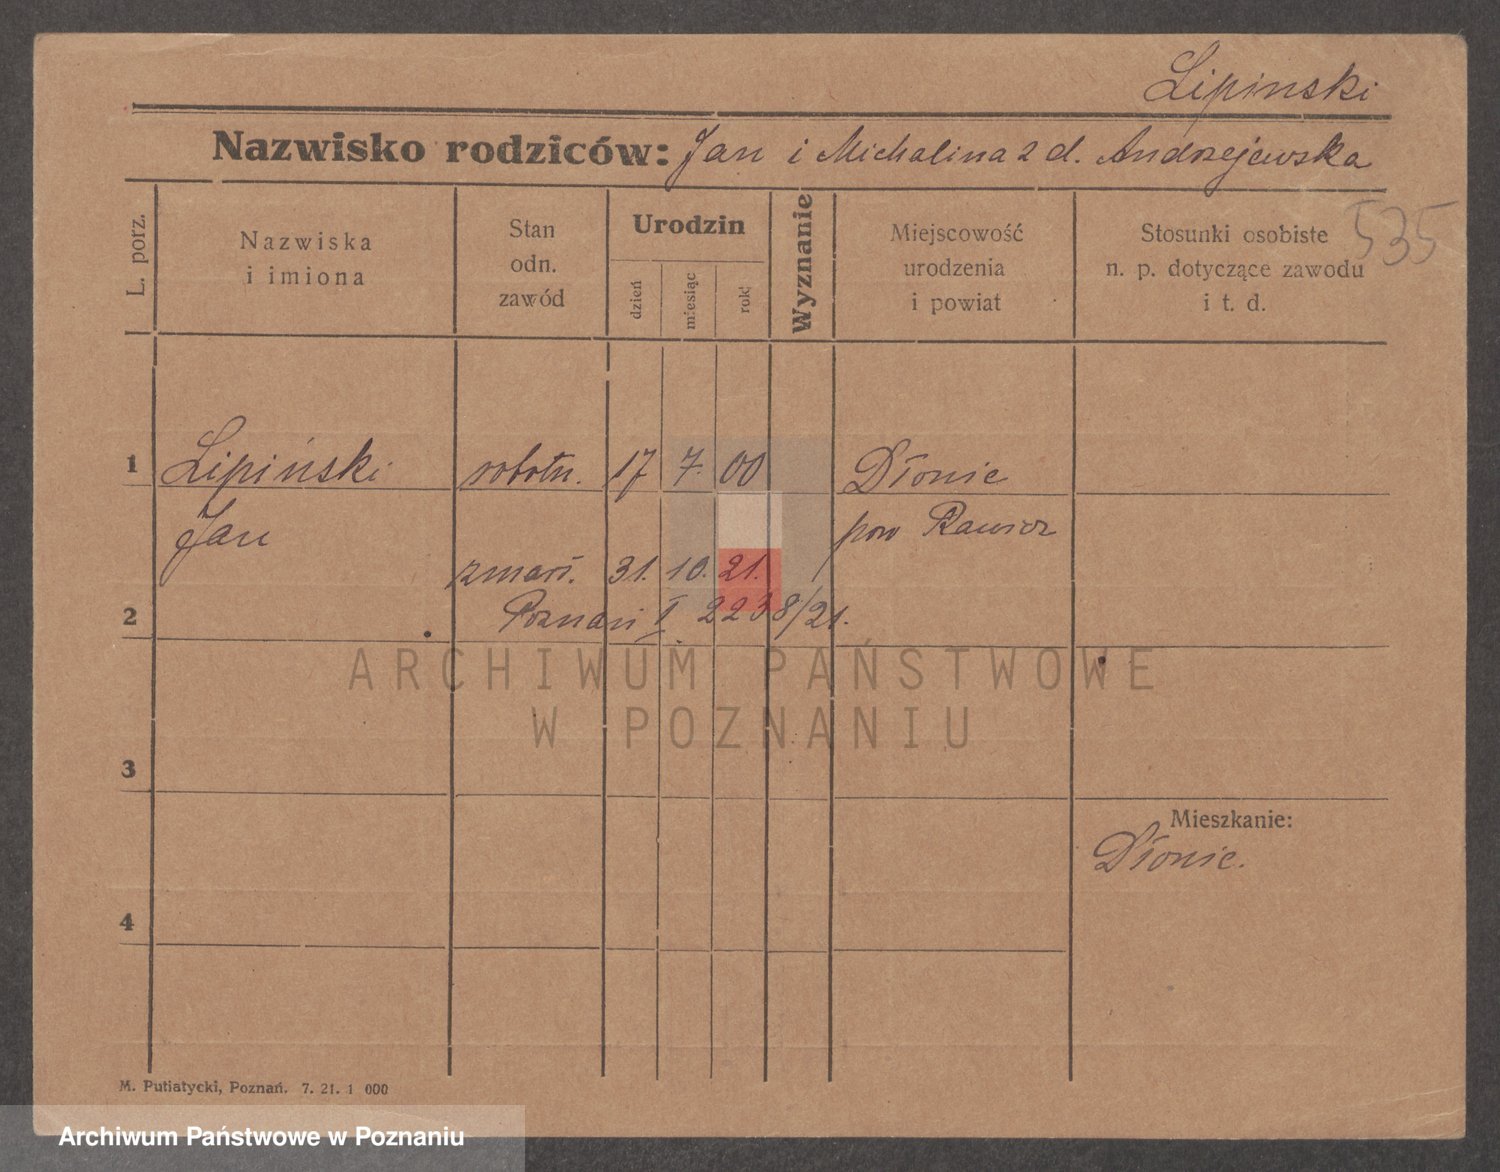 Lipinski
Nazwisko rodziców: Jan i Michalina z d. Andrzejewska
L. porz.
Nazwiska
i imiona
Stan
odn.
zawód
Urodzin
dzień
miesiąc
rok
Wyznanie
Miejscowość
urodzenia
i powiat
Stosunki osobiste
n. p. dotyczące zawodu
i t. d.
535
1 Lipiński robotn. 17 7. 00 Dłonie
Jan pow Rawicz
zmarł. 31. 10. 21.
2 Poznań I 2238/21.
ARCHIWUM PAŃSTWOWE
W POZNANIU
3
Mieszkanie:
Dłonie.
4
M. Putiatycki, Poznań. 7. 21. 1 000
Archiwum Państwowe w Poznaniu